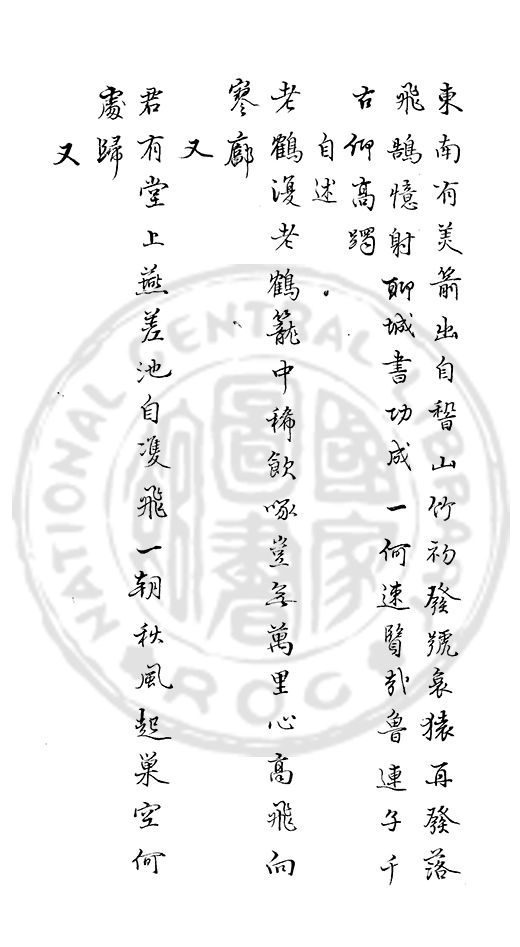 東南有美箭出自稽山竹初發號哀猿再發落
飛鵠憶射聊城書功成一何速賢哉魯連子千
古仰高躅
自述
老鶴漫老鶴籠中稀飲啄豈無萬里心高飛向
寥廓
又
君有堂上燕差池自𩀱飛一朝秋風起巢空何
處歸
又
NATIONAL CENTRAL LIBRARY
R.O.C.
國家圖書館